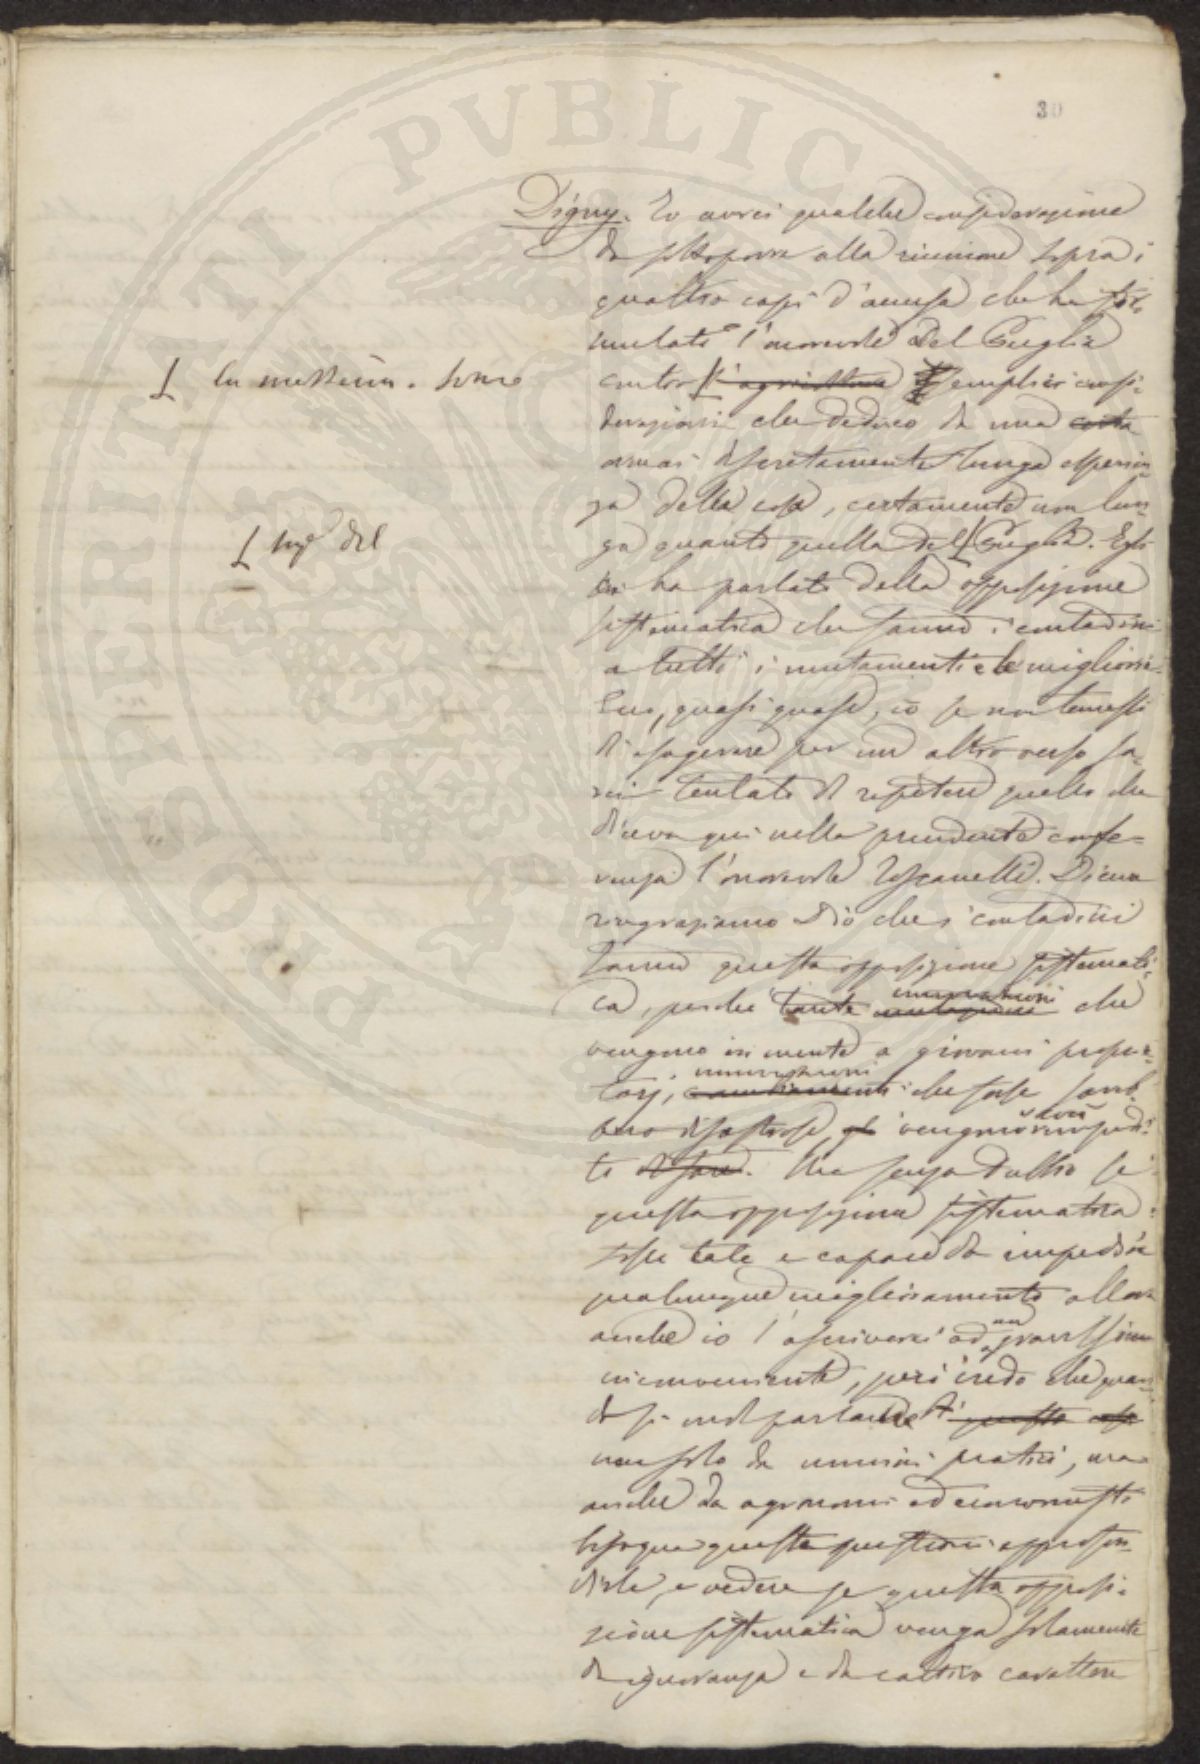 PROSPERITATI PVBLICAE
30
Digny. Io avrei qualche considerazione
da sottoporre alla riunione sopra i
quattro capi d'accusa che ha for-
mulato l'onorevole Del Puglia
contro l'agricoltura semplici consi-
derazioni che deduco da una certa
ormai discretamente lunga esperien-
za della cosa, certamente non lun-
ga quanto quella del Puglia. Egli
ci ha parlato della opposizione
sistematica che fanno i contadini
a tutti i mutamenti e le migliorie.
Ecco, quasi quasi, io se non temessi
di esagerare per un altro verso sa-
rei tentato di ripetere quello che
diceva qui nella precedente confe-
renza l'onorevole Toscanelli. Diceva
ringraziamo Dio che i contadini
fanno questa opposizione sistemati-
ca, perché tante innovazioni che
vengono in mente a giovani proprie-
tarj, innovazioni che forse sareb-
bero disastrose, gli vengono
te di fare. Ma senza dubbio se
questa opposizione sistematica
fosse tale e capace da impedire
qualunque miglioramento allora
anche io l'ascriverei ad un gravissimo
inconveniente, però credo che quan-
do si parla di queste cose
non solo da uomini pratici, ma
anche da agronomi ed economisti
bisogna queste questioni approfon-
dirle, e vedere se questa opposi-
zione sistematica venga solamente
da ignoranza e da cattivo carattere
la mezzeria. Sono
Sig.e del